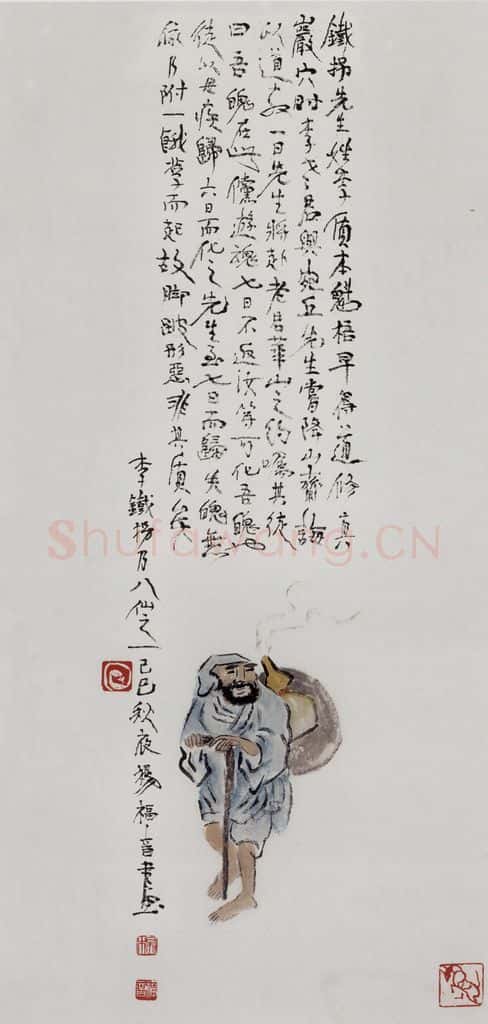 鐵拐先生姓李質本魁梧早得道修真
巖穴時李老君與宛丘先生嘗降山齋誨
以道教一日先生將赴老君華山之約囑其徒
曰吾魄在此儻遊魂七日不返汝等可化吾魄也
徒以母疾歸六日而化之先生至七日而歸失魄無
依乃附一餓莩而起故腳跛形惡非其質矣
李鐵拐乃八仙之一己巳秋夜楊福音書畫
Shufawang.CN